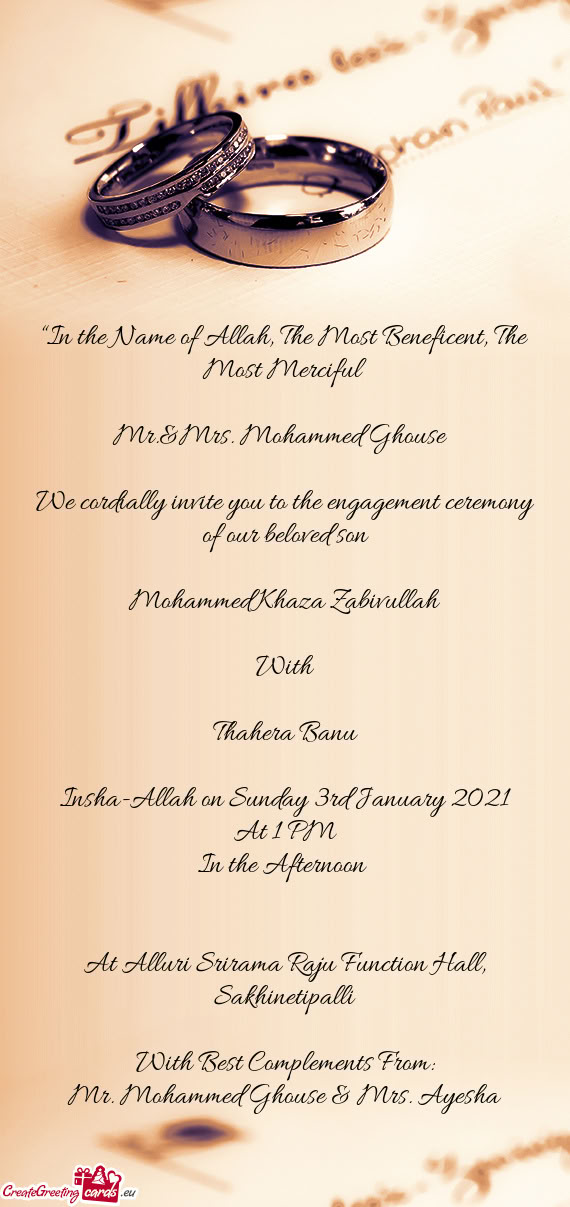 “In the Name of Allah, The Most Beneficent, The
Most Merciful
Mr.&Mrs. Mohammed Ghouse
We cordially invite you to the engagement ceremony
of our beloved son
Mohammed Khaza Zabivullah
With
Thahera Banu
Insha-Allah on Sunday 3rd January 2021
At 1 PM
In the Afternoon
At Alluri Srirama Raju Function Hall,
Sakhinetipalli
With Best Complements From:
Mr. Mohammed Ghouse & Mrs. Ayesha
CreateGreeting cards .eu